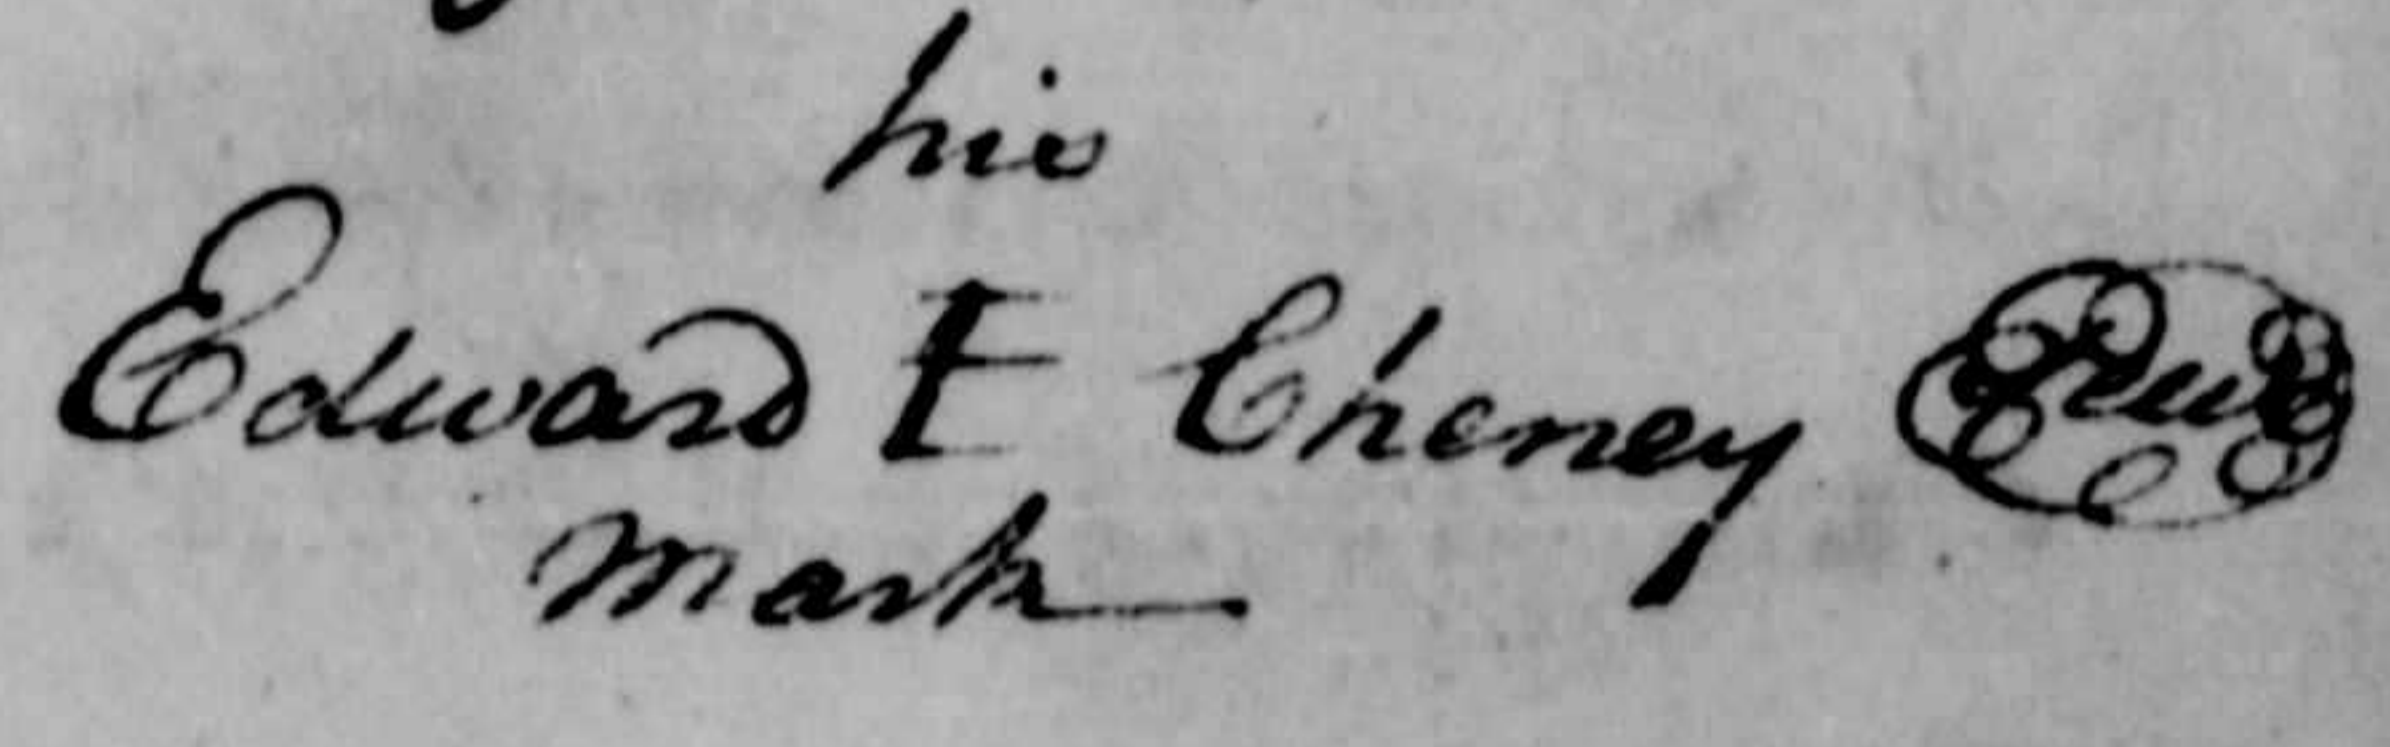 his
Edward E Cheney Seal
Mark